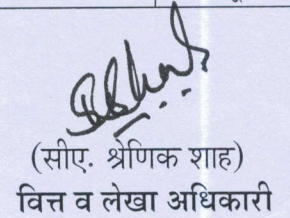 (सीए. श्रेणिक शाह)
वित्त व लेखा अधिकारी